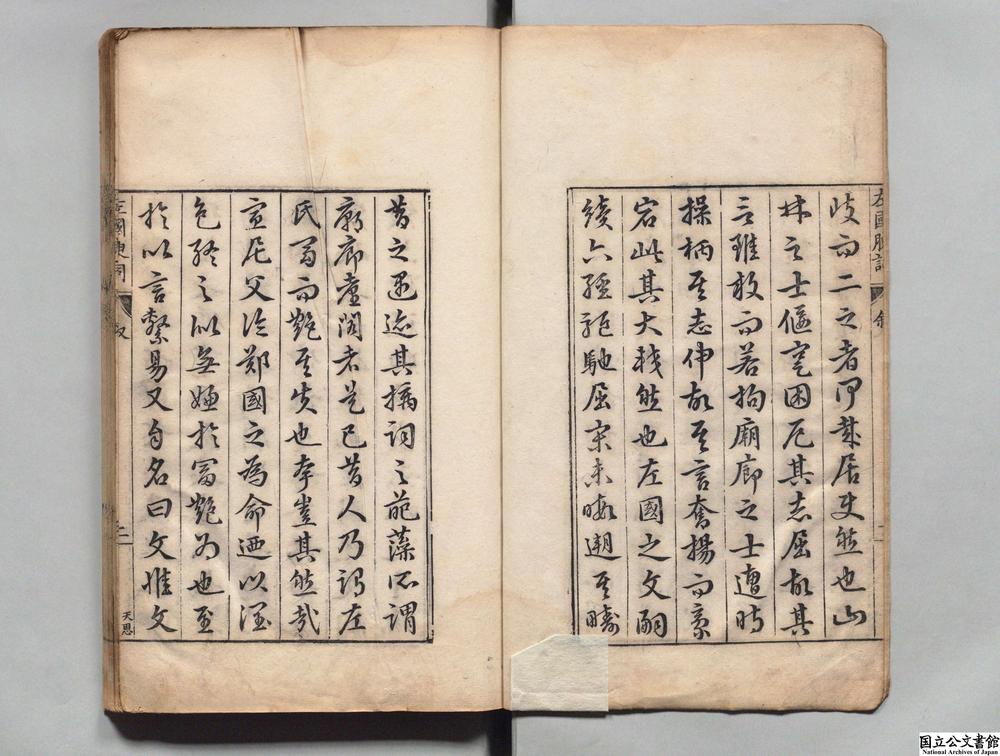 左國腴詞
叙
二
歧而二之者何哉居使然也山
林之士偃蹇困厄其志屈故其
言雖放而若拘廟廊之士遭時
操柄其志伸故其言奮揚而豪
宕此其大較然也左國之文嗣
續六經軀馳屈宋未暇遡其疇
昔之遐迹其摛詞之葩藻所謂
廟廊臺閣者是已昔人乃謂左
氏富而艷其失也誣豈其然哉
宣尼父於鄭國之為命迺以潤
色終之似無嫌於富艷為也至
於以言繫易又自名曰文惟文
左國腴詞
叙
三
天恩
国立公文書館
National Archives of Japan